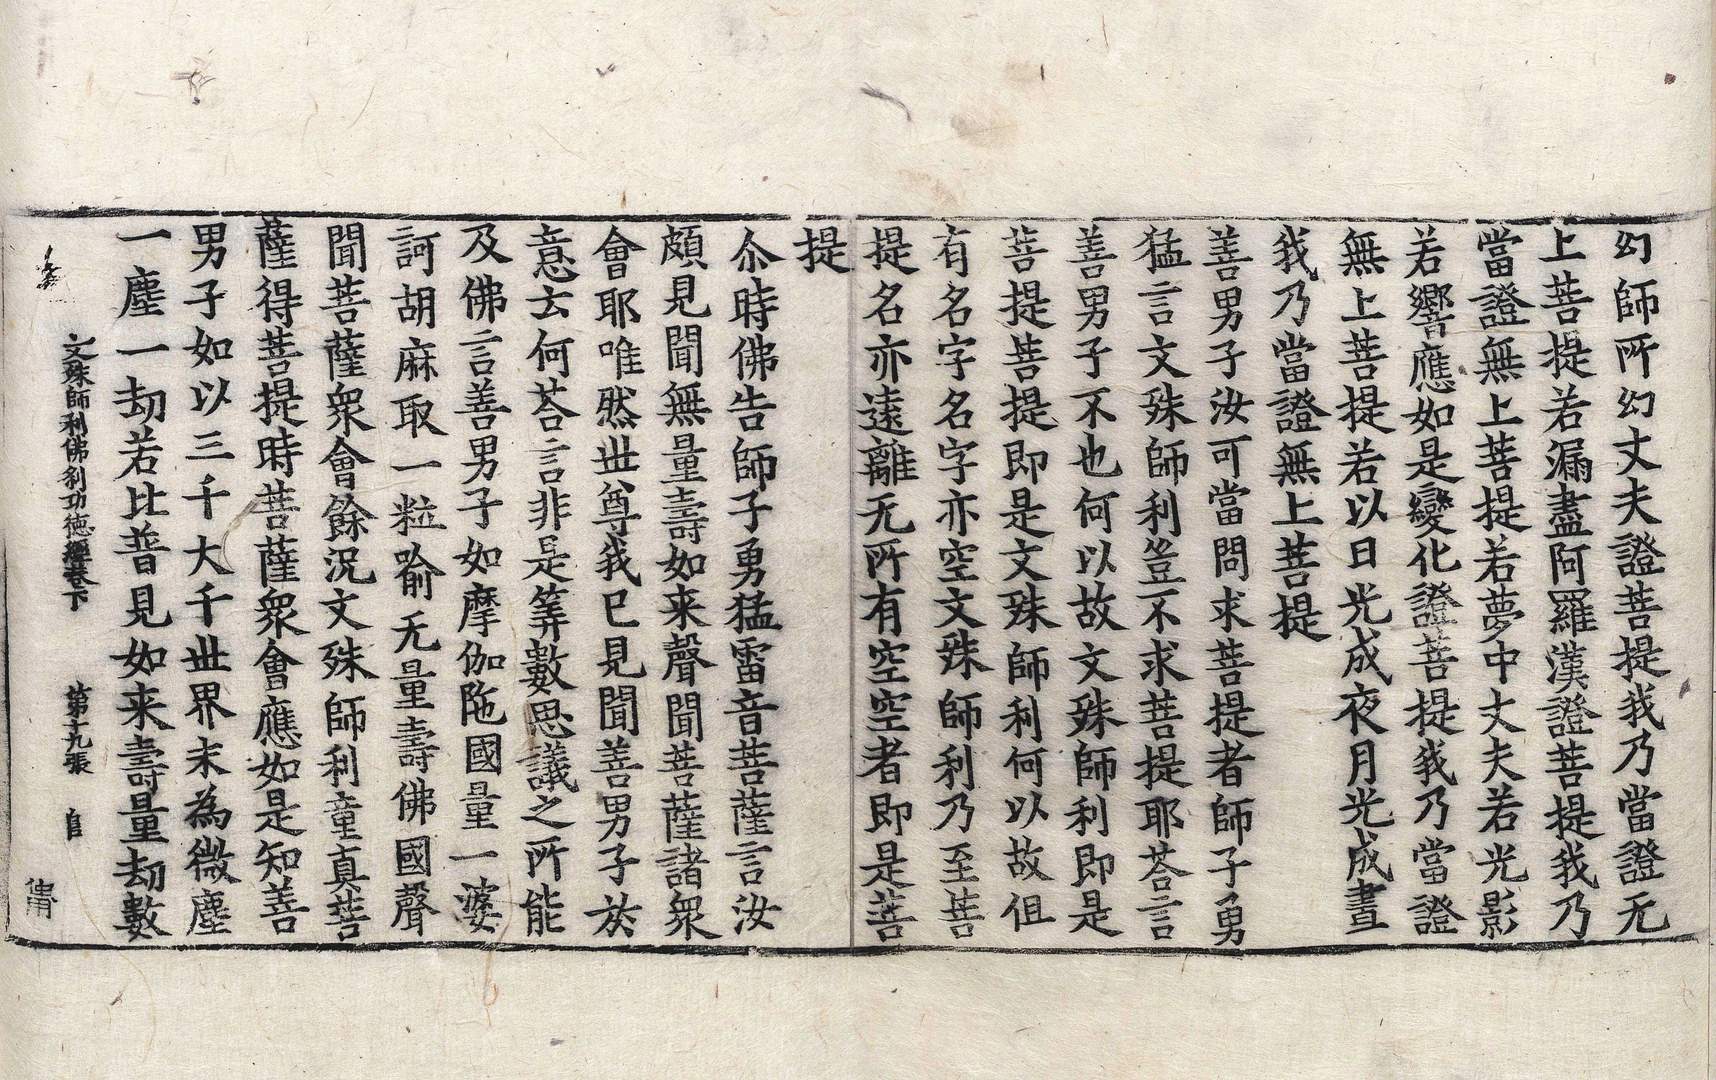 幻師所幻丈夫證菩提我乃當證无
上菩提若漏盡阿羅漢證菩提我乃
當證無上菩提若夢中丈夫若光影
若響應如是變化證菩提我乃當證
無上菩提若以日光成夜月光成晝
我乃當證無上菩提
善男子汝可當問求菩提者師子勇
猛言文殊師利豈不求菩提耶荅言
善男子不也何以故文殊師利即是
菩提菩提即是文殊師利何以故但
有名字名字亦空文殊師利乃至菩
提名亦遠離无所有空空者即是菩
提
尒時佛告師子勇猛雷音菩薩言汝
頗見聞無量壽如来聲聞菩薩諸衆
會耶唯然世尊我已見聞善男子於
意云何荅言非是筭數思議之所能
及佛言善男子如摩伽陁國量一婆
訶胡麻取一粒喻无量壽佛國聲
聞菩薩衆會餘況文殊師利童真菩
薩得菩提時菩薩衆會應如是知善
男子如以三千大千世界末為微塵
一塵一劫若比普見如来壽量劫數
文殊師利佛刹功德經卷下 第十九張 自